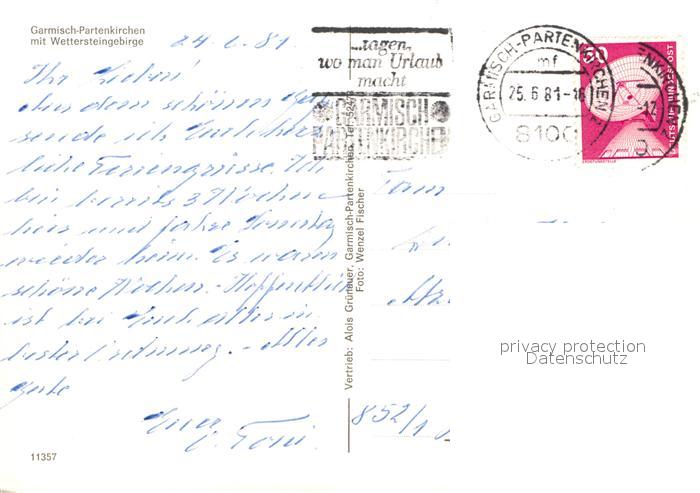 Garmisch-Partenkirchen
mit Wettersteingebirge
24.6.81
Ihr Lieben!
Aus dem schönen
sende ich Euch herz
liche Feriengrüsse. Ich
bin bereits 3 Wochen
hier und fahre Sonntag
wieder heim. Es waren
schöne Wochen. Hoffentlich
ist bei Euch alles in
bester Ordnung. - Alles
Gute
Eure
Toni.
11357
...tagen,
wo man Urlaub
macht
GARMISCH
PARTENKIRCHEN
GARMISCH-PARTENKIRCHEN
mf
25.6.81-18
8100
50
DEUTSCHE BUNDESPOST
ERDFUNKSTELLE
Vertrieb: Alois Grünauer, Garmisch-Partenkirchen, Tel.
Foto: Wenzel Fischer
Fam
852/1
privacy protection
Datenschutz